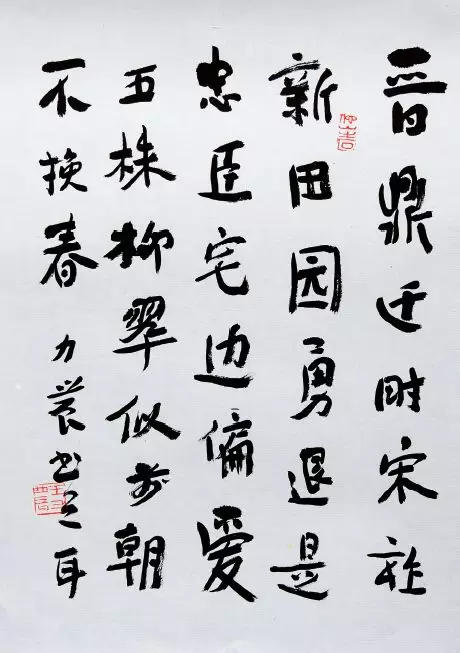 晋鼎迁时宋社
新田园勇退是
忠臣宅边偏爱
五株柳翠似前朝
不换春 力 书之耳